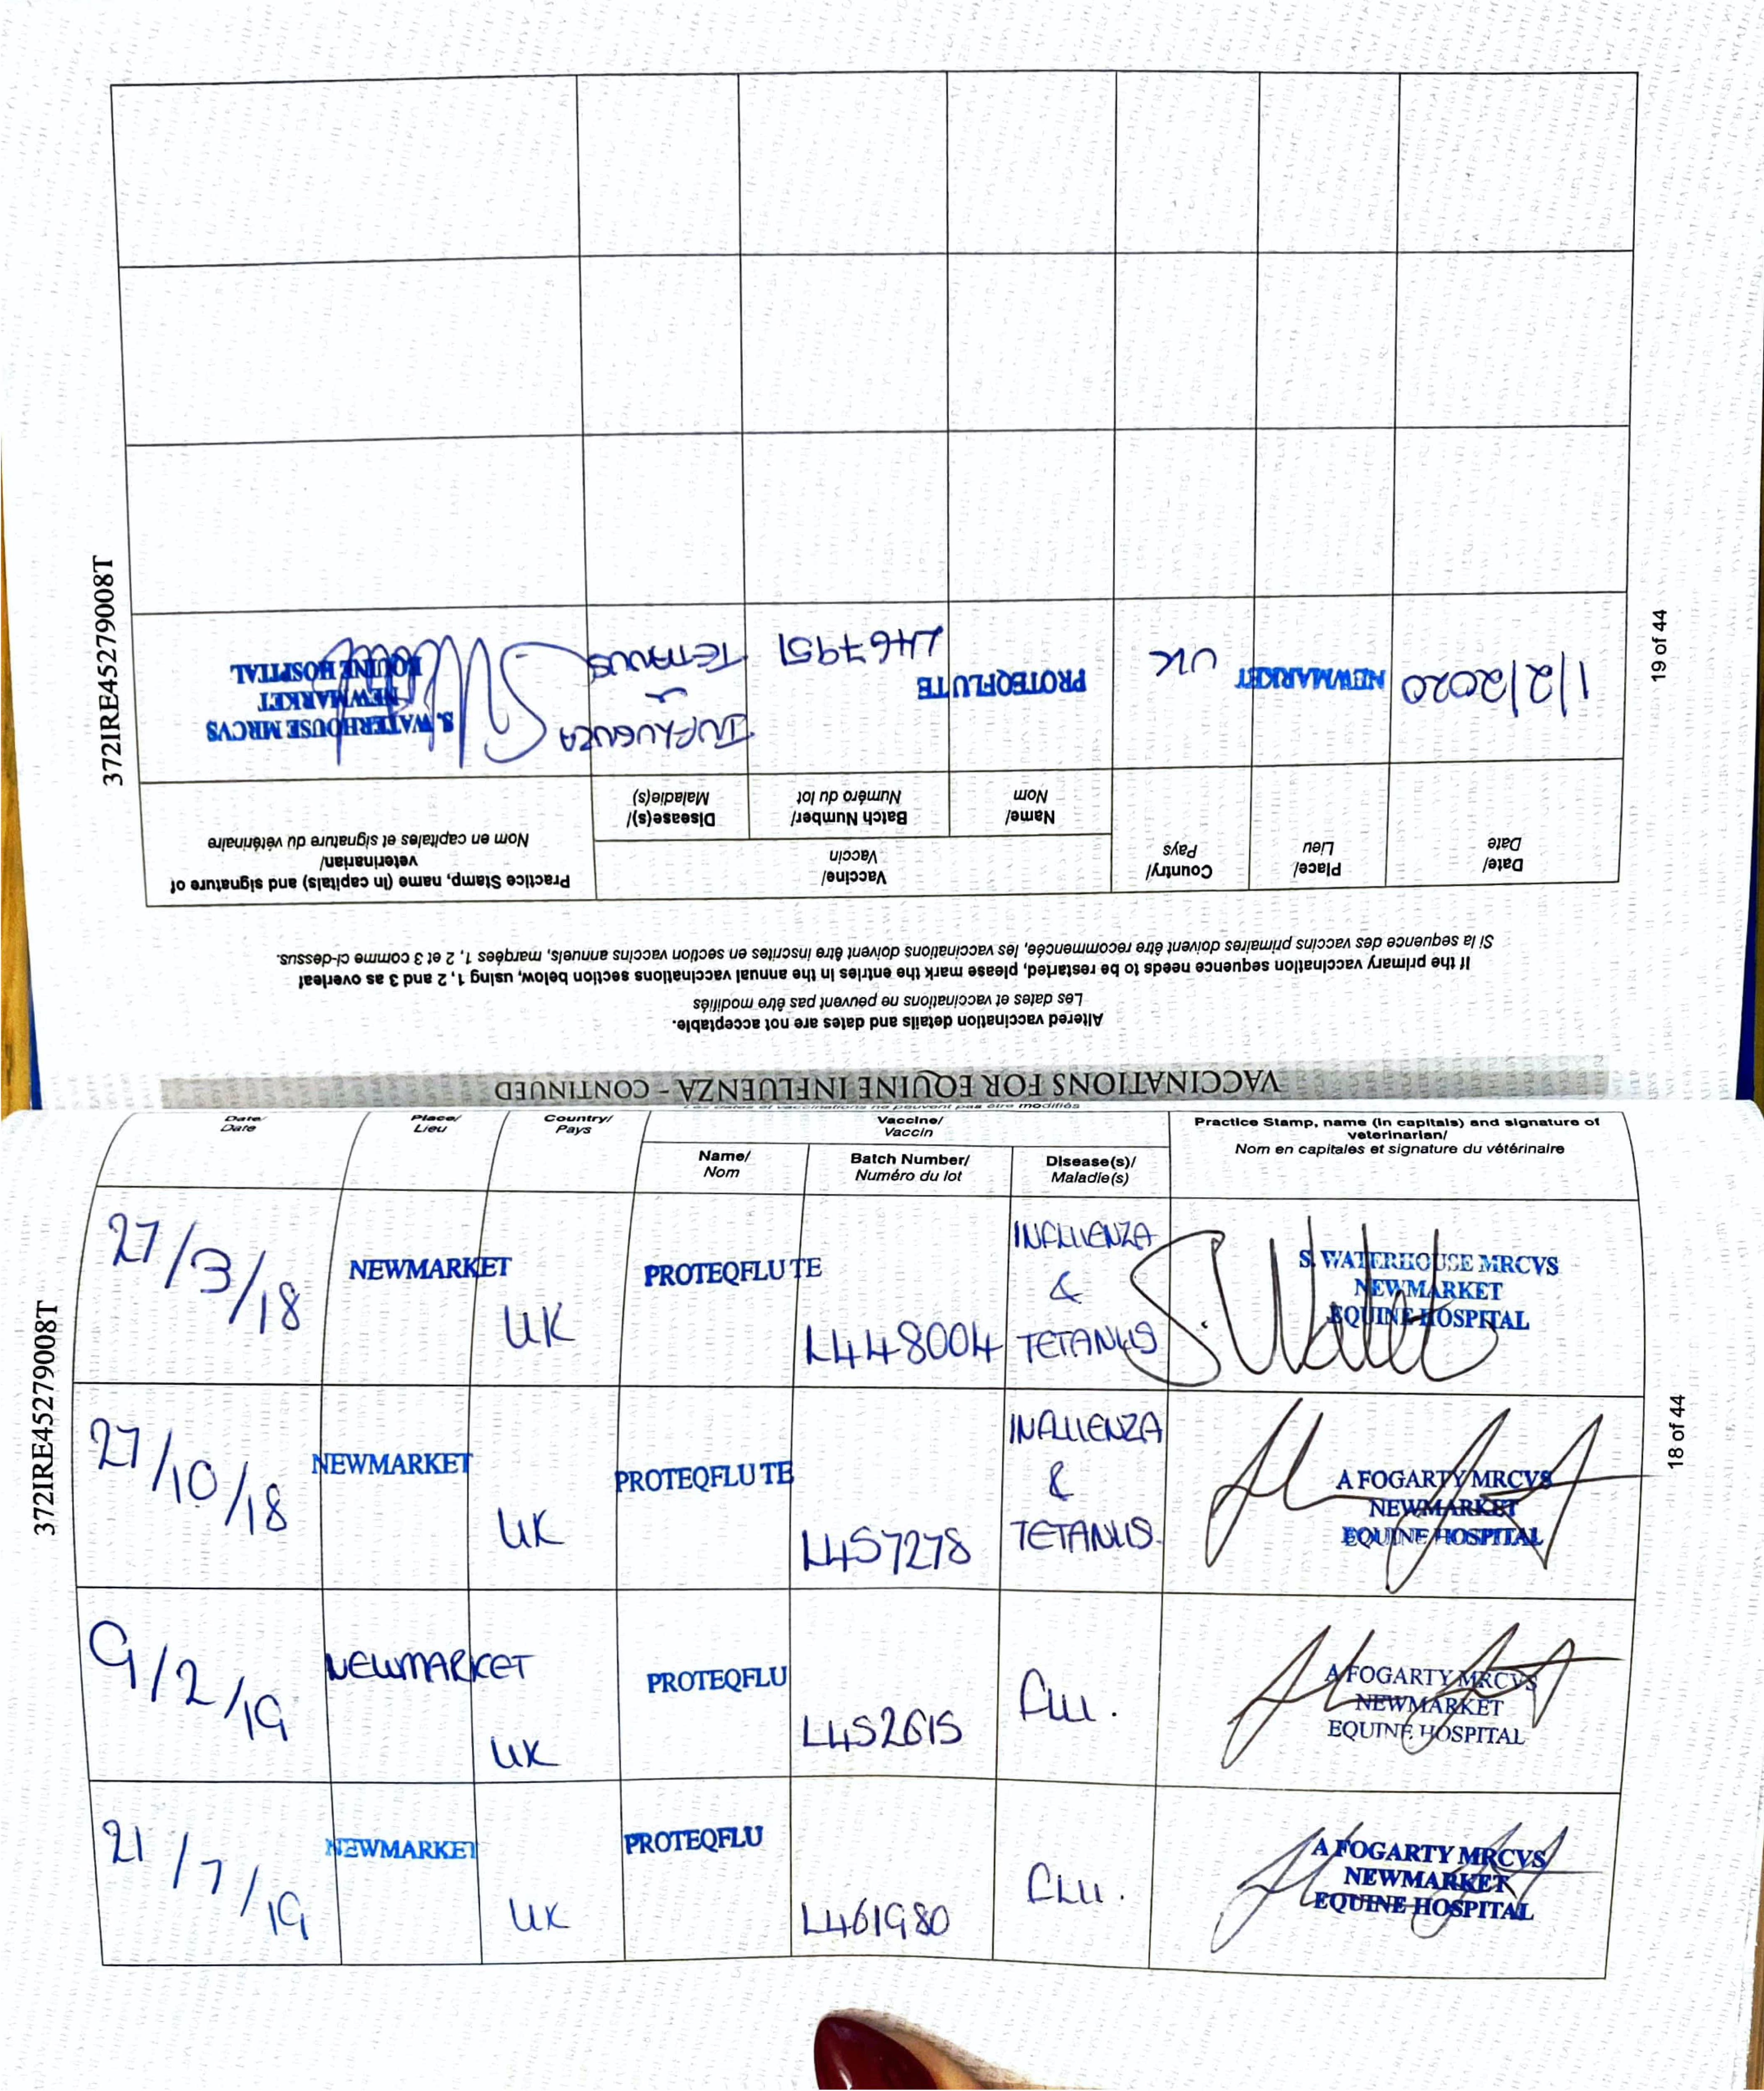 372IRE45279008T
18 of 44
Les dates et vaccinations ne peuvent pas être modifiés
Date/ Date
Place/ Lieu
Country/ Pays
Vaccine/ Vaccin
Name/ Nom
Batch Number/ Numéro du lot
Disease(s)/ Maladie(s)
Practice Stamp, name (in capitals) and signature of
veterinarian/
Nom en capitales et signature du vétérinaire
27/3/18 NEWMARKET UK PROTEQFLU TE L448004 INFLUENZA & TETANUS S. WATERHOUSE MRCVS
NEWMARKET
EQUINE HOSPITAL
27/10/18 NEWMARKET UK PROTEQFLU TE L457278 INFLUENZA & TETANUS. A FOGARTY MRCVS
NEWMARKET
EQUINE HOSPITAL
9/2/19 NEWMARKET UK PROTEQFLU L452615 FLU. A FOGARTY MRCVS
NEWMARKET
EQUINE HOSPITAL
21/7/19 NEWMARKET UK PROTEQFLU L461980 FLU. A FOGARTY MRCVS
NEWMARKET
EQUINE HOSPITAL
VACCINATIONS FOR EQUINE INFLUENZA - CONTINUED
Altered vaccination details and dates are not acceptable.
Les dates et vaccinations ne peuvent pas être modifiés
If the primary vaccination sequence needs to be restarted, please mark the entries in the annual vaccinations section below, using 1, 2 and 3 as overleaf
Si la sequence des vaccins primaires doivent être recommencée, les vaccinations doivent être inscrites en section vaccins annuels, marquées 1, 2 et 3 comme ci-dessus.
Date/ Date
Place/ Lieu
Country/ Pays
Vaccine/ Vaccin
Name/ Nom
Batch Number/ Numéro du lot
Disease(s)/ Maladie(s)
Practice Stamp, name (in capitals) and signature of
veterinarian/
Nom en capitales et signature du vétérinaire
1/2/2020 NEWMARKET UK PROTEQFLUTE L467951 INFLUENZA & TETANUS S. WATERHOUSE MRCVS
NEWMARKET
EQUINE HOSPITAL
372IRE45279008T
19 of 44